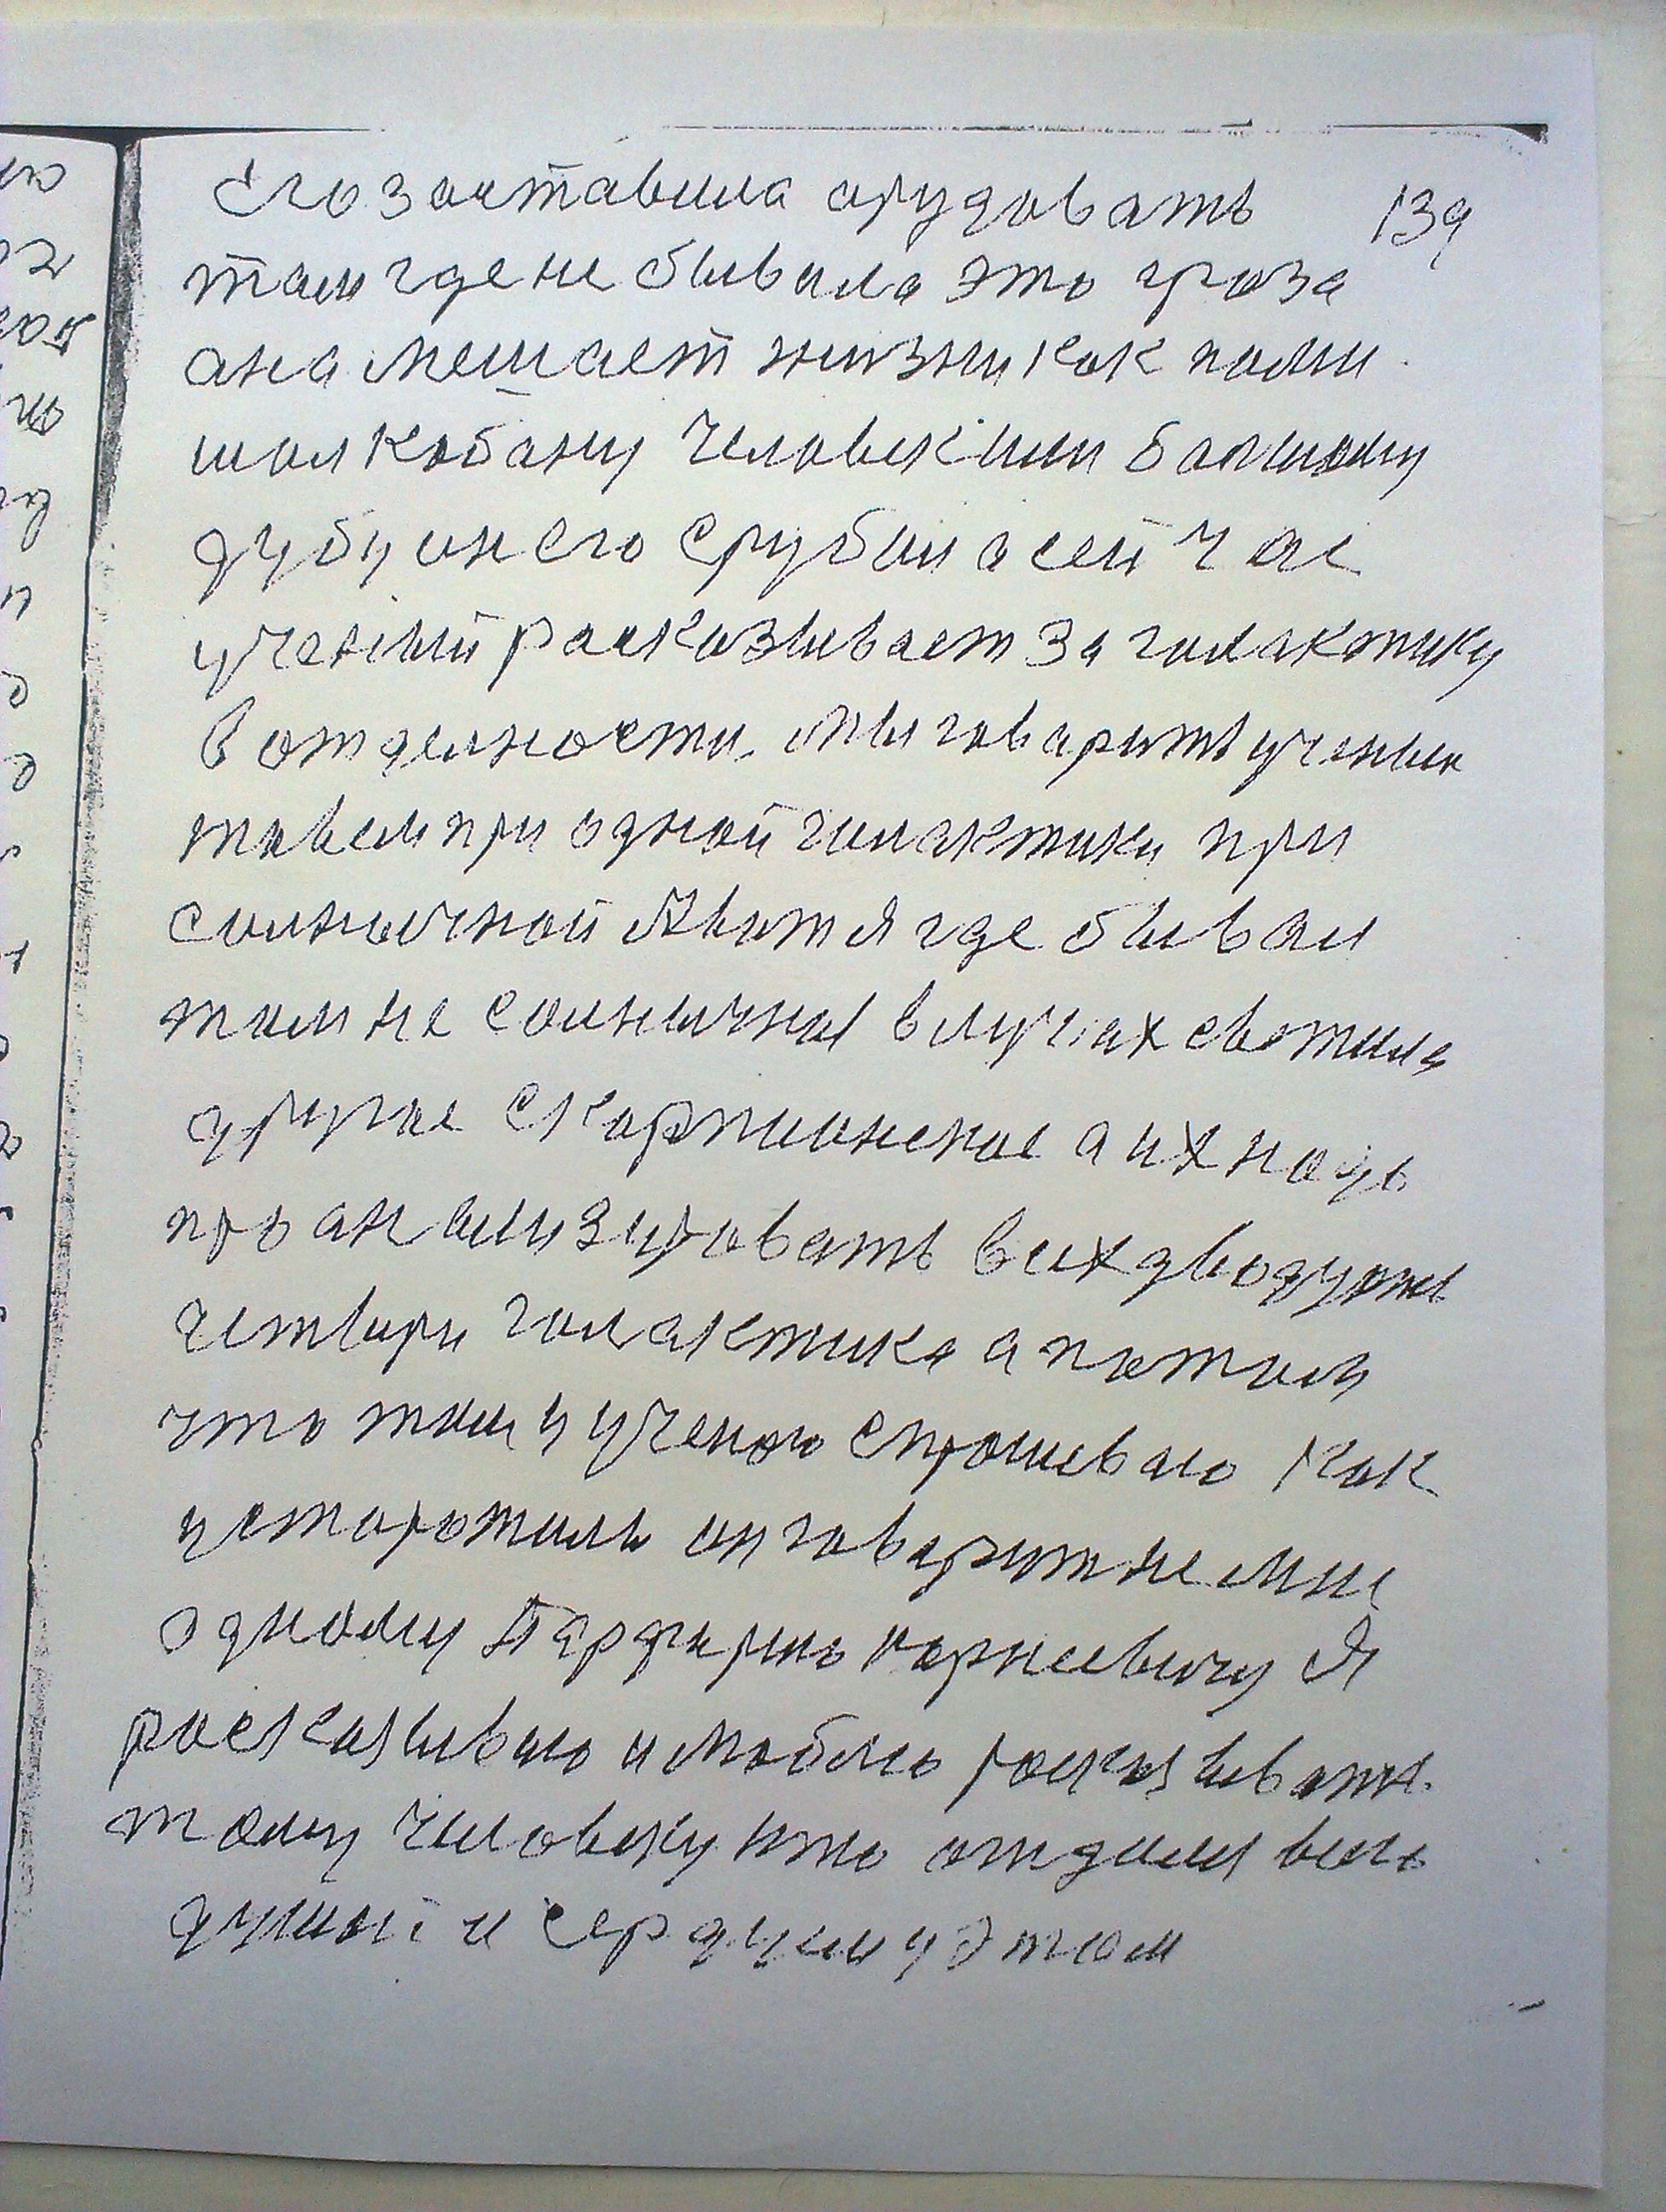 его зоставила арудовать 139
там где не бывала это гроза
ана мешает жизни как поми
шал кобану человек или балшому
дубу он его срубил а сейчас
ученый расказывает за галактику
в отделности мы гаварить ученым
то вем при одной галактики при
солнычной А вот я где бывал
там не солнычныя в лучах светила
другое скорпионское а их надь
проанализировать в их дводцать
четыри галактика а потом
что там у ученого спрошеваю как
он гаварит не мне
одному Парфирию карнеевичу Я
расказываю и люблю расказывать
тому человеку кто отдался всею
душой и сердцем у этом